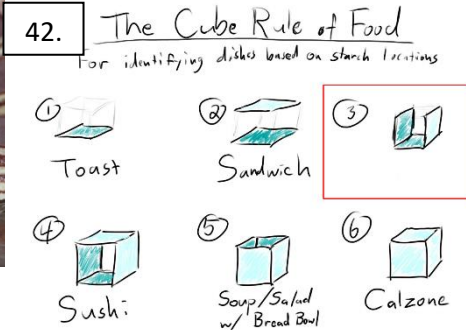 42.
The Cube Rule of Food
For identifying dishes based on starch locations
1
Toast
2
Sandwich
3
4
Sushi
5
Soup/Salad
w/ Bread Bowl
6
Calzone